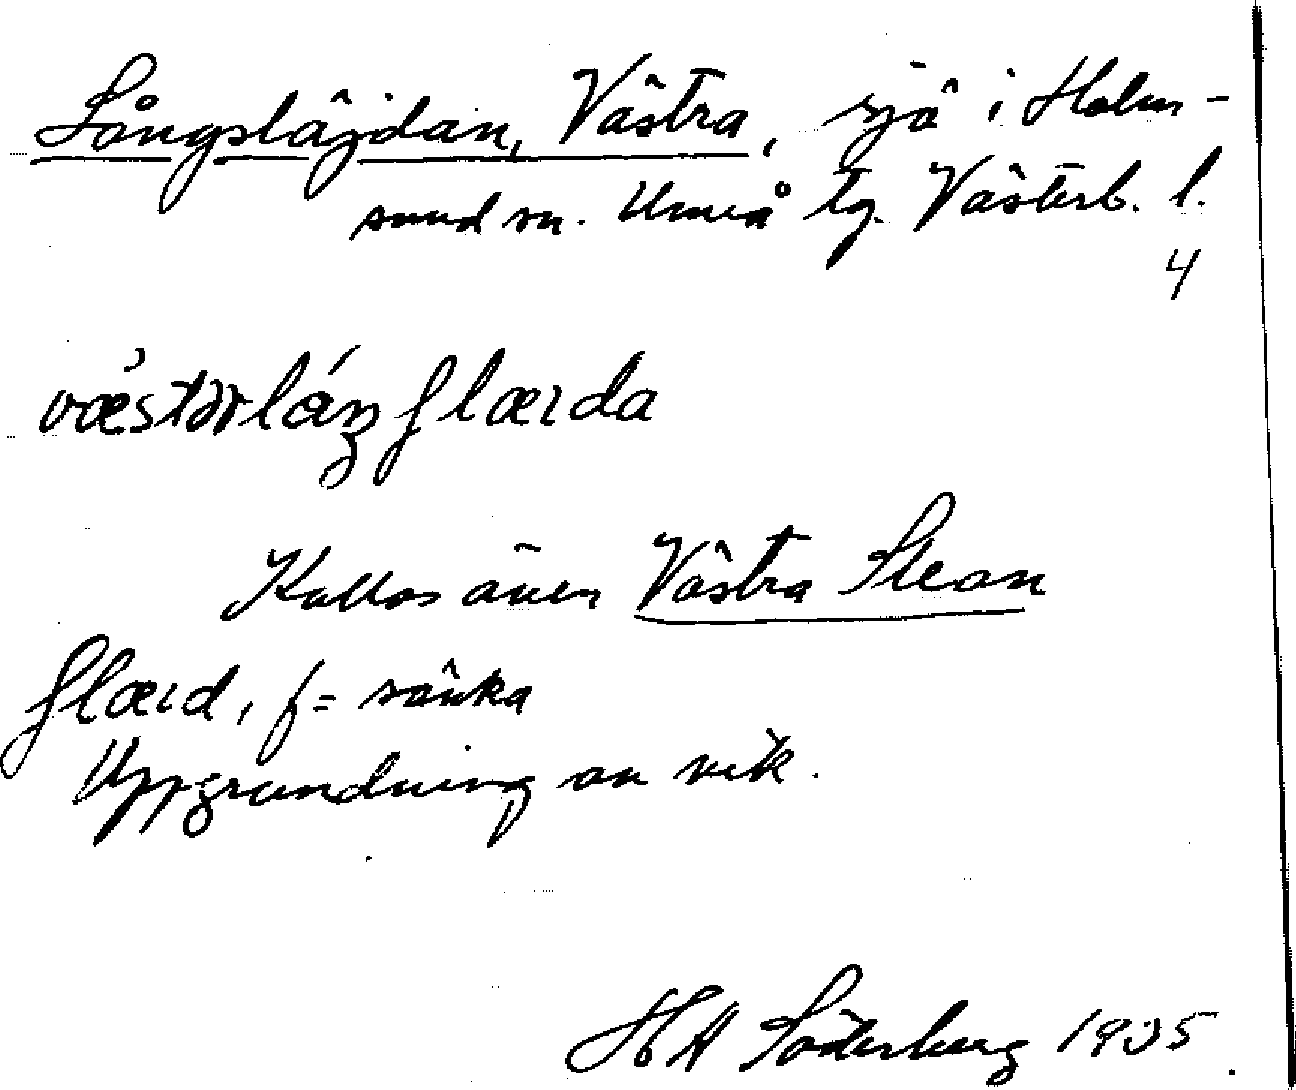 Långsläjdan, Västra, sjö i Holm-
sund sn. Umeå tg. Västerb. l.
4
Kallas även Västra Slean
f = sänka
Uppgrundning av vik.
HA Söderberg 1935